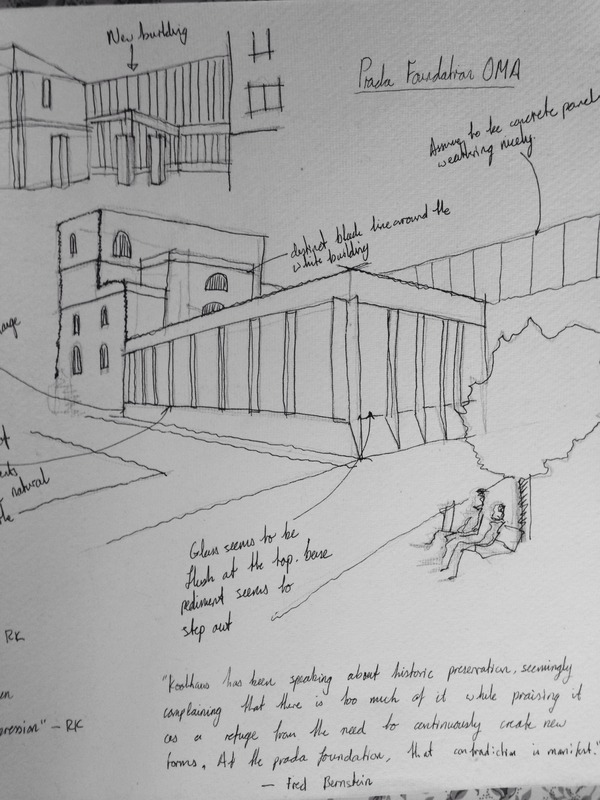 New building
Prada Foundation OMA
Assume to be concrete panels
weathring nicely.
distinct black line around the
white building
of
natural
Glass seems to be
flush at the top. base
pediment seems to
step out
RK
"Koolhaas has been speaking about historic preservation, seemingly
complaining that there is too much of it while praising it
as a refuge from the need to continuously create new
forms. At the prada foundation, that contradiction is manifest."
— Fred Bernstein
pression" — RK